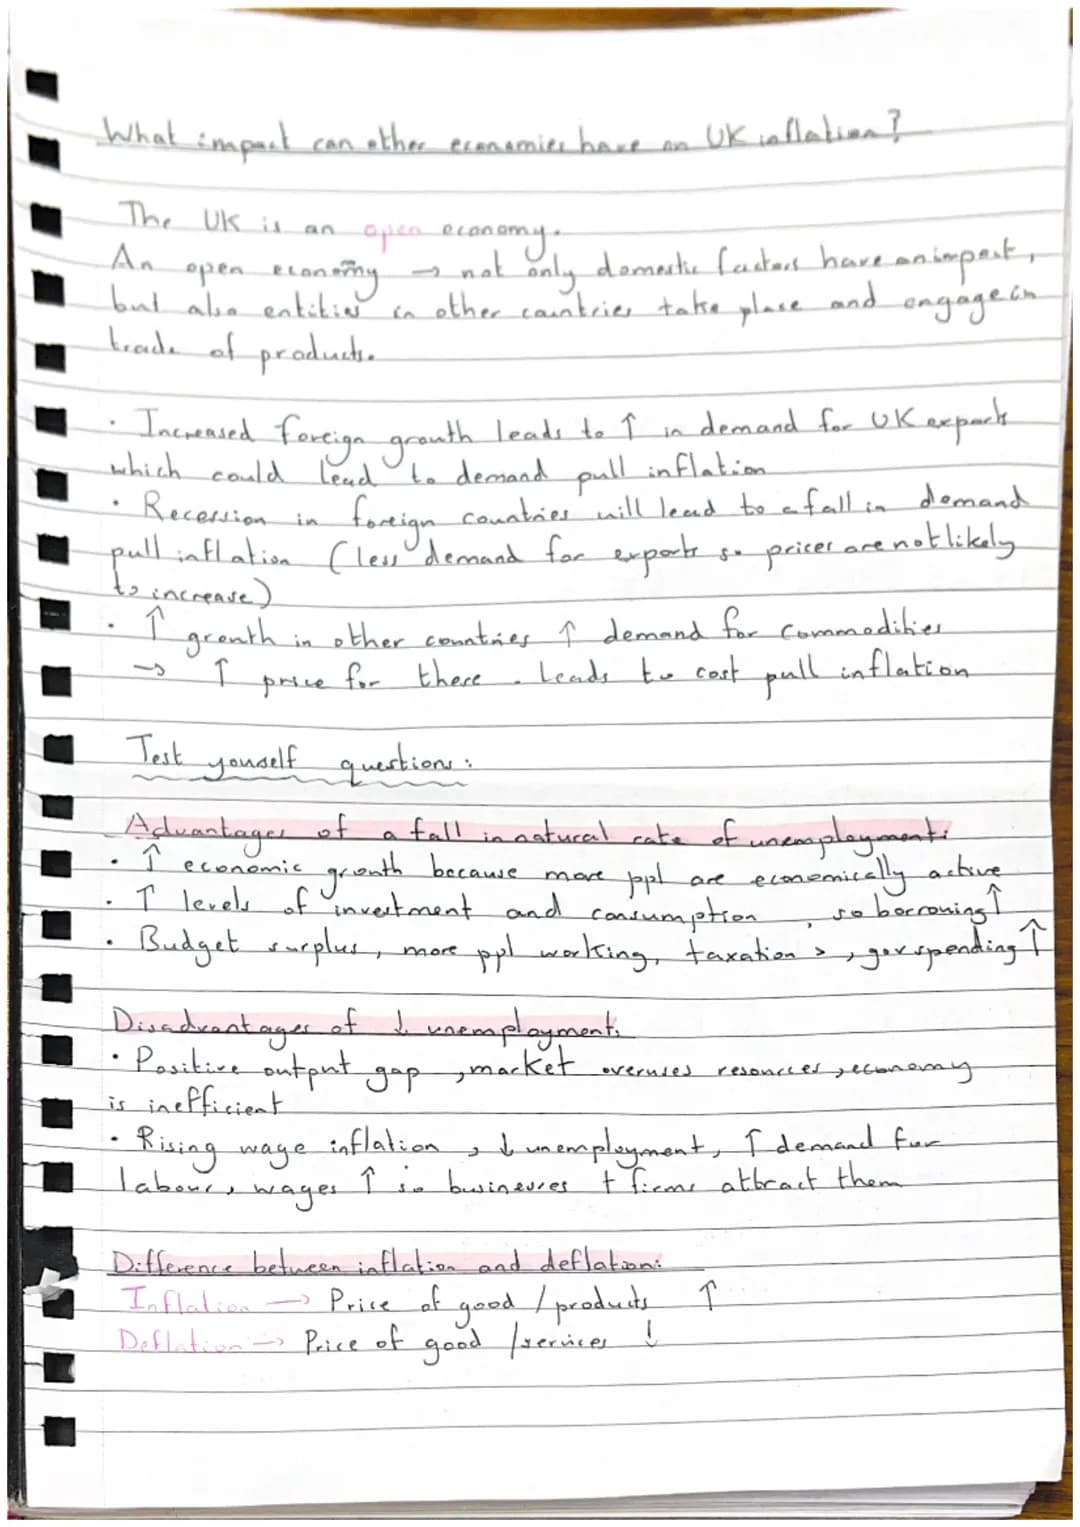 What impact can other economies have on UK inflation?
The UK is an open economy.
An open economy → not only domestic factors have an impact,
but also entities in other countries take place and engage in
trade of products.
· Increased foreign growth leads to ↑ in demand for UK exports
which could lead to demand pull inflation
· Recession in foreign countries will lead to a fall in demand
pull inflation (less demand for exports so prices are not likely
to increase)
· ↑ growth in other countries ↑ demand for commodities
→ ↑ price for these. Leads to cost pull inflation
Test youself questions:
Advantages of a fall in natural rate of unemployment:
· ↑ economic growth because more ppl are economically active
· ↑ levels of investment and consumption, so borrowing ↑
· Budget surplus, more ppl working, taxation >, gov spending ↑
Disadvantages of ↓ unemployment:
· Positive output gap, market overuses resources, economy
is inefficient
· Rising wage inflation, ↓ unemployment, ↑ demand for
labour, wages ↑ so businesses + firms attract them
Difference between inflation and deflation:
Inflation → Price of good / products ↑
Deflation → Price of good /services ↓